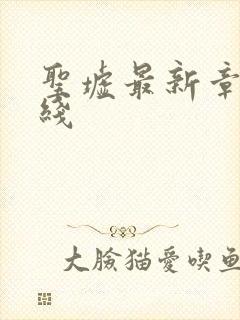 聖墟最新章
綫
大臉猫愛喫魚